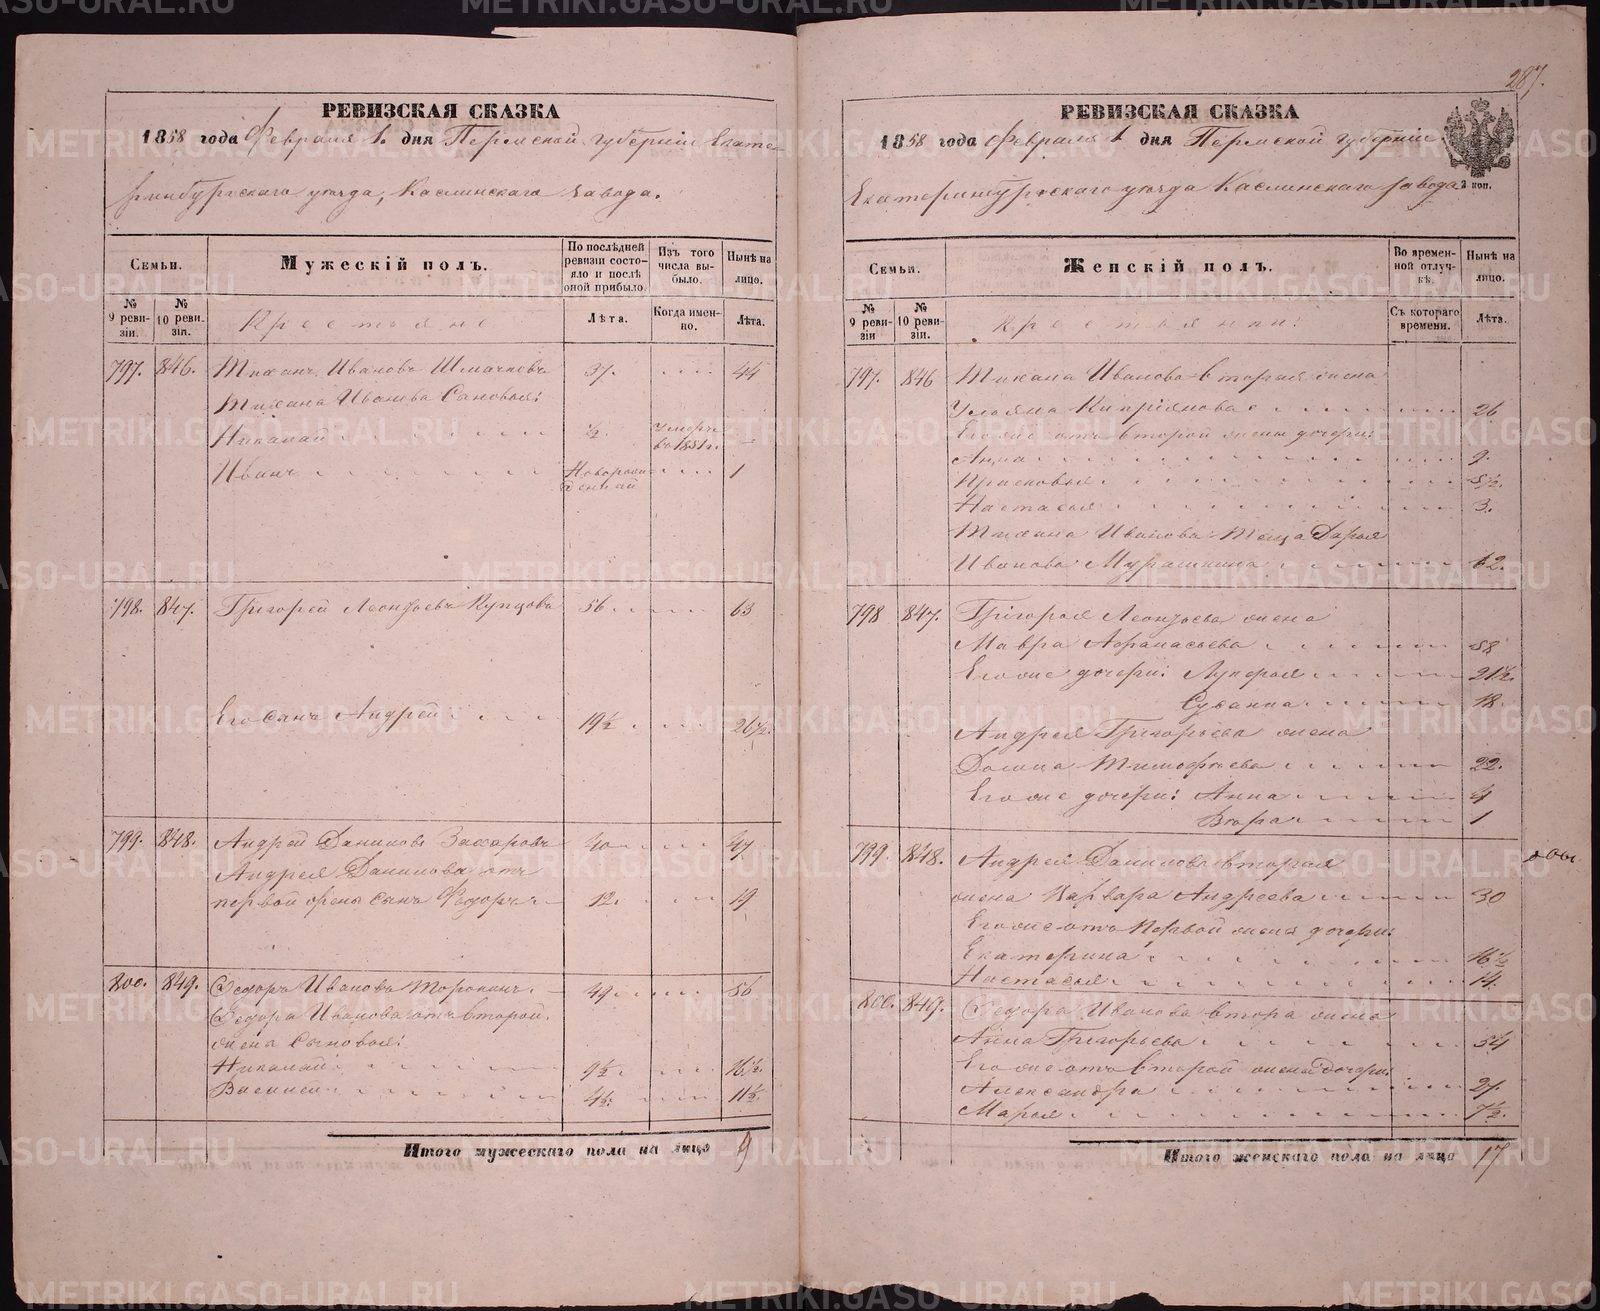 287.
РЕВИЗСКАЯ СКАЗКА
1858 года Февраля 1. дня Пермской Губерніи Екате-
ринбургскаго уѣзда, Каслинскаго завода.
Семьи.
Мужескій полъ.
По послѣдней ревизіи состояло и послѣ оной прибыло.
Изъ того числа выбыло.
Нынѣ на лицо.
№ 9 ревизіи.
№ 10 ревизіи.
Крестьяне
Лѣта.
Когда именно.
Лѣта.
797. 846. Иванов 37. 44
Ивановa Сыновья:
Николай ½. Умеръ въ 1851 г. –
Иванъ Новорожденный 1
798. 847. Григорей Леонтьевъ Купцовъ 56 63
Его Сынъ Андрей 19½ 26½.
799. 848. Андрей Даниловъ Захаровъ 40 47
Андрея Данилова отъ
первой жены сынъ Федоръ 12. 19
800. 849. Федоръ Ивановъ 49 56
Федора Иванова отъ второй
жены Сыновья:
Николай 9½ 16½.
Василей 4½. 11½.
Итого мужескаго пола на лицо 9
РЕВИЗСКАЯ СКАЗКА
1858 года Февраля 1 дня Пермской Губерніи
2 коп.
Екатеринбургскаго уѣзда Каслинскаго завода
Семьи.
Женскій полъ.
Во временной отлучкѣ.
Нынѣ на лицо.
№ 9 ревизіи
№ 10 ревизіи.
Крестьянки:
Съ котораго времени.
Лѣта.
797. 846 Иванова вторая жена
Ульяна Кипріянова 26
Его же отъ второй жены дочери:
Анна 9.
Прасковья 5½.
Настасья 3.
Иванова теща Дарья
Иванова Мурашкина 62.
798 847. Григорья Леонтьева жена
Мавра Афанасьева 58
Его же дочери: Лукерья 21½.
Сусанна 18.
Андрея Григорьева жена
Домна Тимофѣева 22.
Его же дочери: Анна 4
Вѣра 1
799 848. Андрея Данилова вторая
жена Варвара Андреева 30
Его же отъ первой жены дочери:
Екатерина 16½
Настасья 14.
800. 849. Федора Иванова втора жена
Анна Григорьева 54
Его же отъ второй жены дочери:
Александра 21.
Марья 7½.
Итого женскаго пола на лицо 17
METRIKI.GASO-URAL.RU